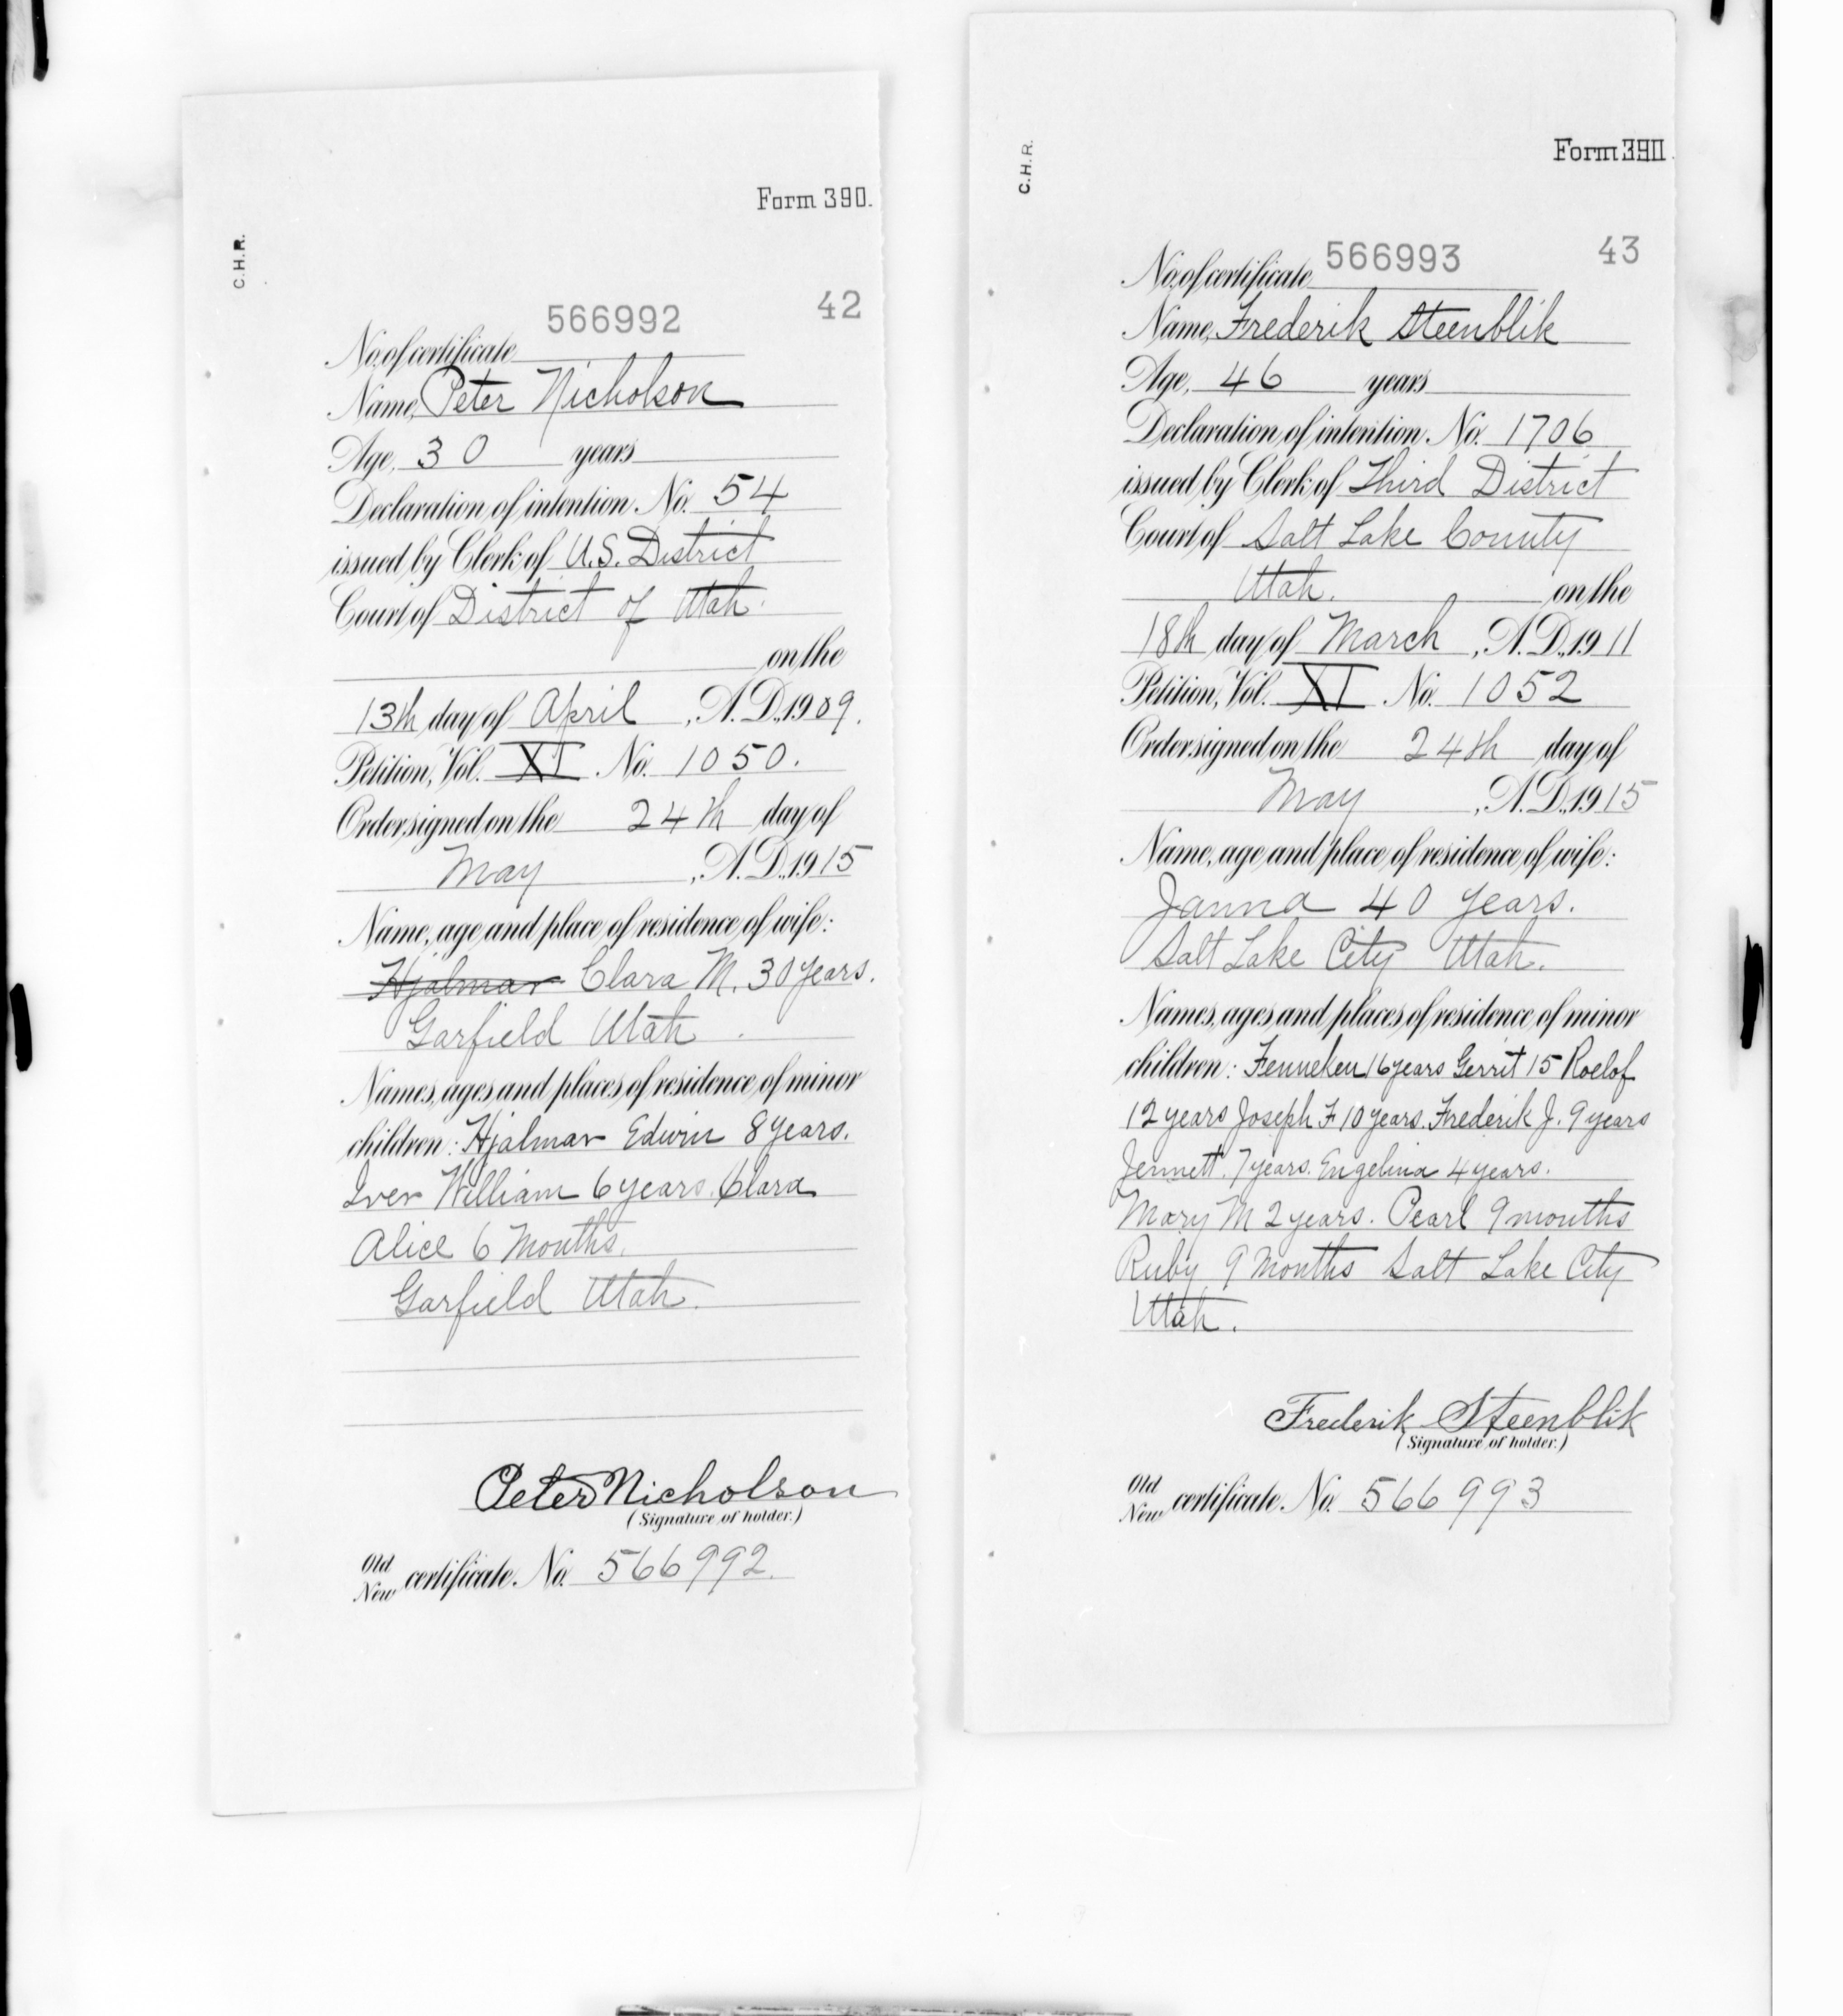 C.H.R.
Form 390.
566992 42
No. of certificate
Name, Peter Nicholson
Age, 30 years
Declaration of intention No. 54
issued by Clerk of U.S. District
Court of District of Utah.
on the
13th day of April, A.D. 1909.
Petition, Vol. XI No. 1050.
Order signed on the 24th day of
May, A.D. 1915
Name, age and place of residence of wife:
Hjalmar Clara M. 30 years.
Garfield Utah.
Names, ages and places of residence of minor
children: Hjalmar Edwin 8 years.
Iver William 6 years. Clara
Alice 6 Months.
Garfield Utah.
Peter Nicholson
(Signature of holder.)
Old
New certificate No. 566992.
C.H.R.
Form 390.
No. of certificate 566993 43
Name, Frederik Steenblik
Age, 46 years
Declaration of intention No. 1706
issued by Clerk of Third District
Court of Salt Lake County
Utah. on the
18th day of March, A.D. 1911
Petition, Vol. XI No. 1052
Order signed on the 24th day of
May, A.D. 1915
Name, age and place of residence of wife:
Janna 40 years.
Salt Lake City Utah.
Names, ages and places of residence of minor
children: Fenneken 16 years Gerrit 15 Roelof
12 years Joseph F 10 years. Frederik J. 9 years
Jennett. 7 years. Engelina 4 years.
Mary M 2 years. Pearl 9 months
Ruby 9 Months Salt Lake City
Utah.
Frederik Steenblik
(Signature of holder.)
Old
New certificate No. 566993